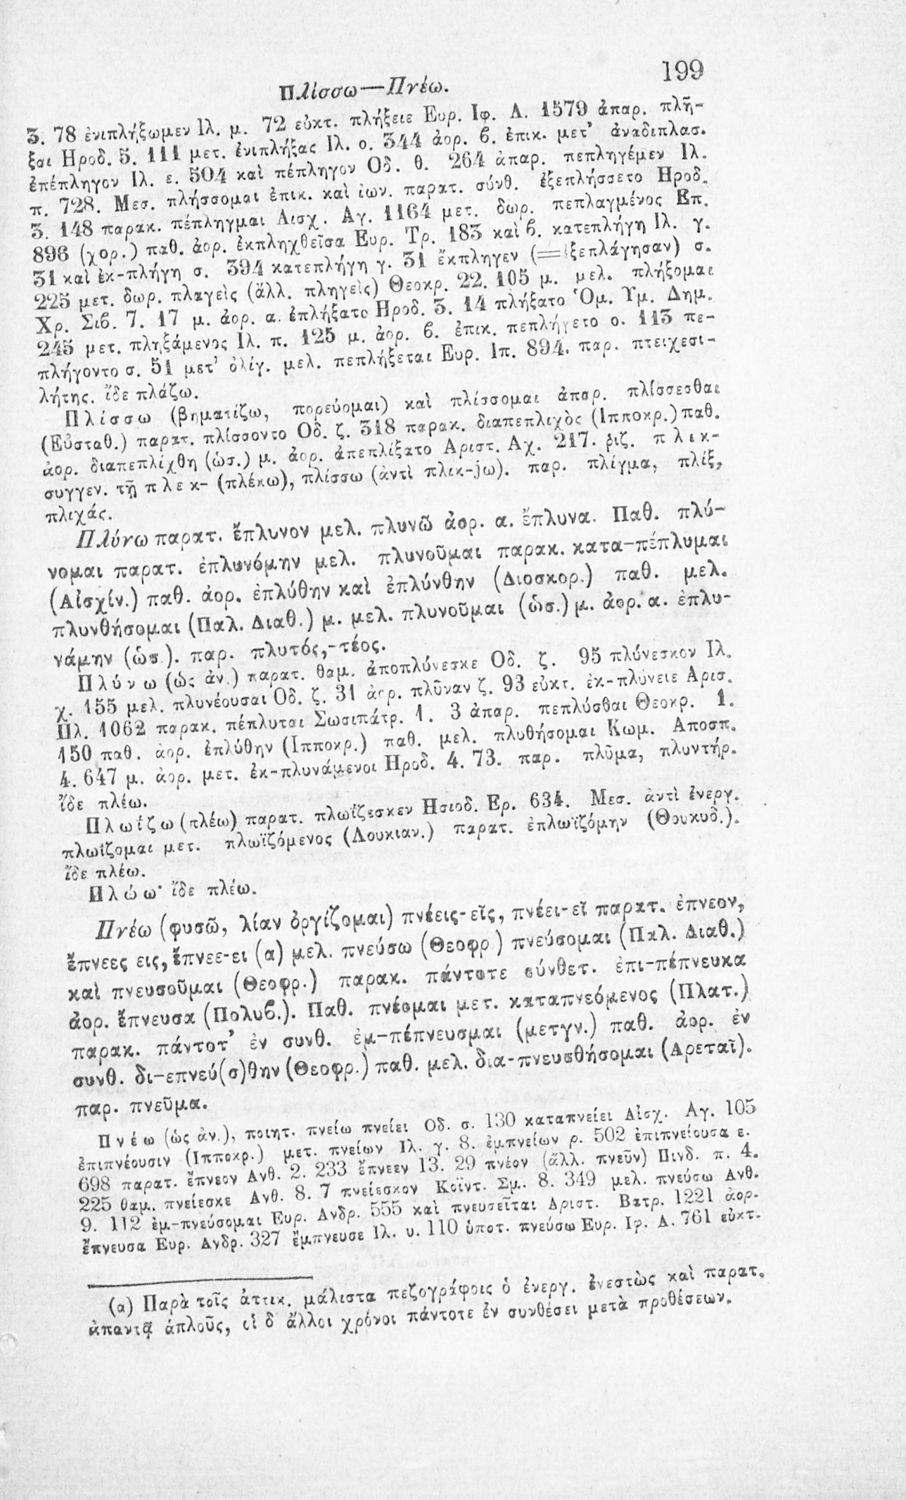 Πλίσσω—Πνέω. 199
3. 78 ἐνιπλήξωμεν Ἰλ. μ. 72 εὐκτ. πλήξειε Εὐρ. Ἰφ. Α. 1579 ἀπαρ. πλῆ-
ξαι Ἡροδ. 5. 111 μετ. ἐνιπλήξας Ἰλ. ο. 344 ἀορ. β. ἐπικ. μετ' ἀναδιπλασ.
ἐπέπληγον Ἰλ. ε. 504 καὶ πέπληγον Ὀδ. θ. 264 ἀπαρ. πεπληγέμεν Ἰλ.
π. 728. Μεσ. πλήσσομαι ἐπικ. καὶ ἰων. παρατ. σύνθ. ἐξεπλήσσετο Ἡροδ.
3. 148 παρακ. πέπληγμαι Αἰσχ. Ἀγ. 1164 μετ. δωρ. πεπλαγμένος Ἐπ.
896 (χορ.) παθ. ἀορ. ἐκπληχθεῖσα Εὐρ. Τρ. 183 καὶ β. κατεπλήγη Ἰλ. γ.
31 καὶ ἐκ-πλήγη σ. 394 κατεπλήγη γ. 31 ἔκπληγεν (=ἐξεπλάγησαν) σ.
225 μετ. δωρ. πλαγεὶς (ἄλλ. πληγεὶς) Θεοκρ. 22. 105 μ. μελ. πλήξομαι
Χρ. Σιβ. 7. 17 μ. ἀορ. α. ἐπλήξατο Ἡροδ. 3. 14 πλήξατο Ὁμ. Ὑμ. Δημ.
245 μετ. πληξάμενος Ἰλ. π. 125 μ. ἀορ. β. ἐπικ. πεπλήγετο ο. 113 πε-
πλήγοντο σ. 51 μετ' ὀλίγ. μελ. πεπλήξεται Εὐρ. Ἱπ. 894. παρ. πτειχεσι-
λήτης. ἴδε πλάζω.
Πλίσσω (βηματίζω, πορεύομαι) καὶ πλίσσομαι ἀπαρ. πλίσσεσθαι
(Εὐσταθ.) παρατ. πλίσσοντο Ὀδ. ζ. 318 παρακ. διαπεπλιχὸς (Ἱπποκρ.) παθ.
ἀορ. διαπεπλίχθη (ὡσ.) μ. ἀορ. ἀπεπλίξατο Ἀριστ. Ἀχ. 217. ῥιζ. πλικ-
συγγεν. τῇ πλεκ- (πλέκω), πλίσσω (ἀντὶ πλικ-jω). παρ. πλίγμα, πλίξ,
πλιχάς.
Πλύνω παρατ. ἔπλυνον μελ. πλυνῶ ἀορ. α. ἔπλυνα. Παθ. πλύ-
νομαι παρατ. ἐπλυνόμην μελ. πλυνοῦμαι παρακ. κατα-πέπλυμαι
(Αἰσχίν.) παθ. ἀορ. ἐπλύθην καὶ ἐπλύνθην (Διοσκορ.) παθ. μελ.
πλυνθήσομαι (Παλ. Διαθ.) μ. μελ. πλυνοῦμαι (ὡσ.) μ. ἀορ. α. ἐπλυ-
νάμην (ὡσ.). παρ. πλυτός,-τέος.
Πλύνω (ὡς ἀν.) παρατ. θαμ. ἀποπλύνεσκε Ὀδ. ζ. 95 πλύνεσκον Ἰλ.
χ. 155 μελ. πλυνέουσαι Ὀδ. ζ. 31 ἀορ. πλῦναν ζ. 93 εὐκτ. ἐκ-πλύνειε Ἀρισ.
Πλ. 1062 παρακ. πέπλυται Σωσιπάτρ. 1. 3 ἀπαρ. πεπλύσθαι Θεοκρ. 1.
150 παθ. ἀορ. ἐπλύθην (Ἱπποκρ.) παθ. μελ. πλυθήσομαι Κωμ. Ἀποσπ.
4. 647 μ. ἀορ. μετ. ἐκ-πλυνάμενοι Ἡροδ. 4. 73. παρ. πλῦμα, πλυντήρ.
ἴδε πλέω.
Πλωΐζω (πλέω) παρατ. πλωΐζεσκεν Ἡσιοδ. Ἐρ. 634. Μεσ. ἀντὶ ἐνεργ.
πλωΐζομαι μετ. πλωϊζόμενος (Λουκιαν.) παρατ. ἐπλωϊζόμην (Θουκυδ.).
ἴδε πλέω.
Πλώω· ἴδε πλέω.
Πνέω (φυσῶ, λίαν ὀργίζομαι) πνέεις-εῖς, πνέει-εῖ παρατ. ἔπνεον,
ἔπνεες εις, ἔπνεε-ει (α) μελ. πνεύσω (Θεοφρ) πνεύσομαι (Παλ. Διαθ.)
καὶ πνευσοῦμαι (Θεοφρ.) παρακ. πάντοτε σύνθετ. ἐπι-πέπνευκα
ἀορ. ἔπνευσα (Πολυβ.). Παθ. πνέομαι μετ. καταπνεόμενος (Πλατ.)
παρακ. πάντοτ' ἐν συνθ. ἐμ-πέπνευσμαι (μετγν.) παθ. ἀορ. ἐν
συνθ. δι-επνεύ(σ)θην (Θεοφρ.) παθ. μελ. δια-πνευσθήσομαι (Ἀρεταῖ).
παρ. πνεῦμα.
Πνέω (ὡς ἀν.), ποιητ. πνείω πνείει Ὀδ. σ. 130 καταπνείει Αἰσχ. Ἀγ. 105
ἐπιπνέουσιν (Ἱπποκρ.) μετ. πνείων Ἰλ. γ. 8. ἐμπνείων ρ. 502 ἐπιπνείουσα ε.
698 παρατ. ἔπνεον Ἀνθ. 2. 233 ἔπνεεν 13. 29 πνέον (ἄλλ. πνεῦν) Πινδ. π. 4.
225 θαμ. πνείεσκε Ἀνθ. 8. 7 πνείεσκον Κοϊντ. Σμ. 8. 349 μελ. πνεύσω Ἀνθ.
9. 112 ἐμ-πνεύσομαι Εὐρ. Ἀνδρ. 555 καὶ πνευσεῖται Ἀριστ. Βατρ. 1221 ἀορ.
ἔπνευσα Εὐρ. Ἀνδρ. 327 ἔμπνευσε Ἰλ. υ. 110 ὑποτ. πνεύσω Εὐρ. Ἰφ. Α. 761 εὐκτ.
(α) Παρὰ τοῖς ἀττικ. μάλιστα πεζογράφοις ὁ ἐνεργ. ἐνεστὼς καὶ παρατ.
ἀπαντᾷ ἁπλοῦς, οἱ δ' ἄλλοι χρόνοι πάντοτε ἐν συνθέσει μετὰ προθέσεων.